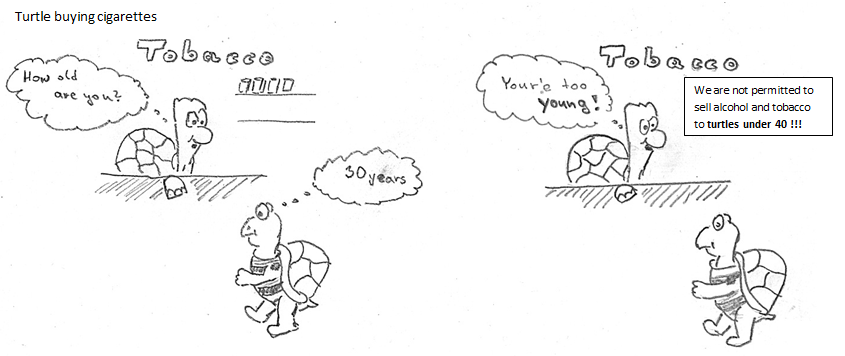 Turtle buying cigarettes
Tobacco
How old
are you?
30 years
Tobacco
Your'e too
young!
We are not permitted to
sell alcohol and tobacco
to turtles under 40 !!!